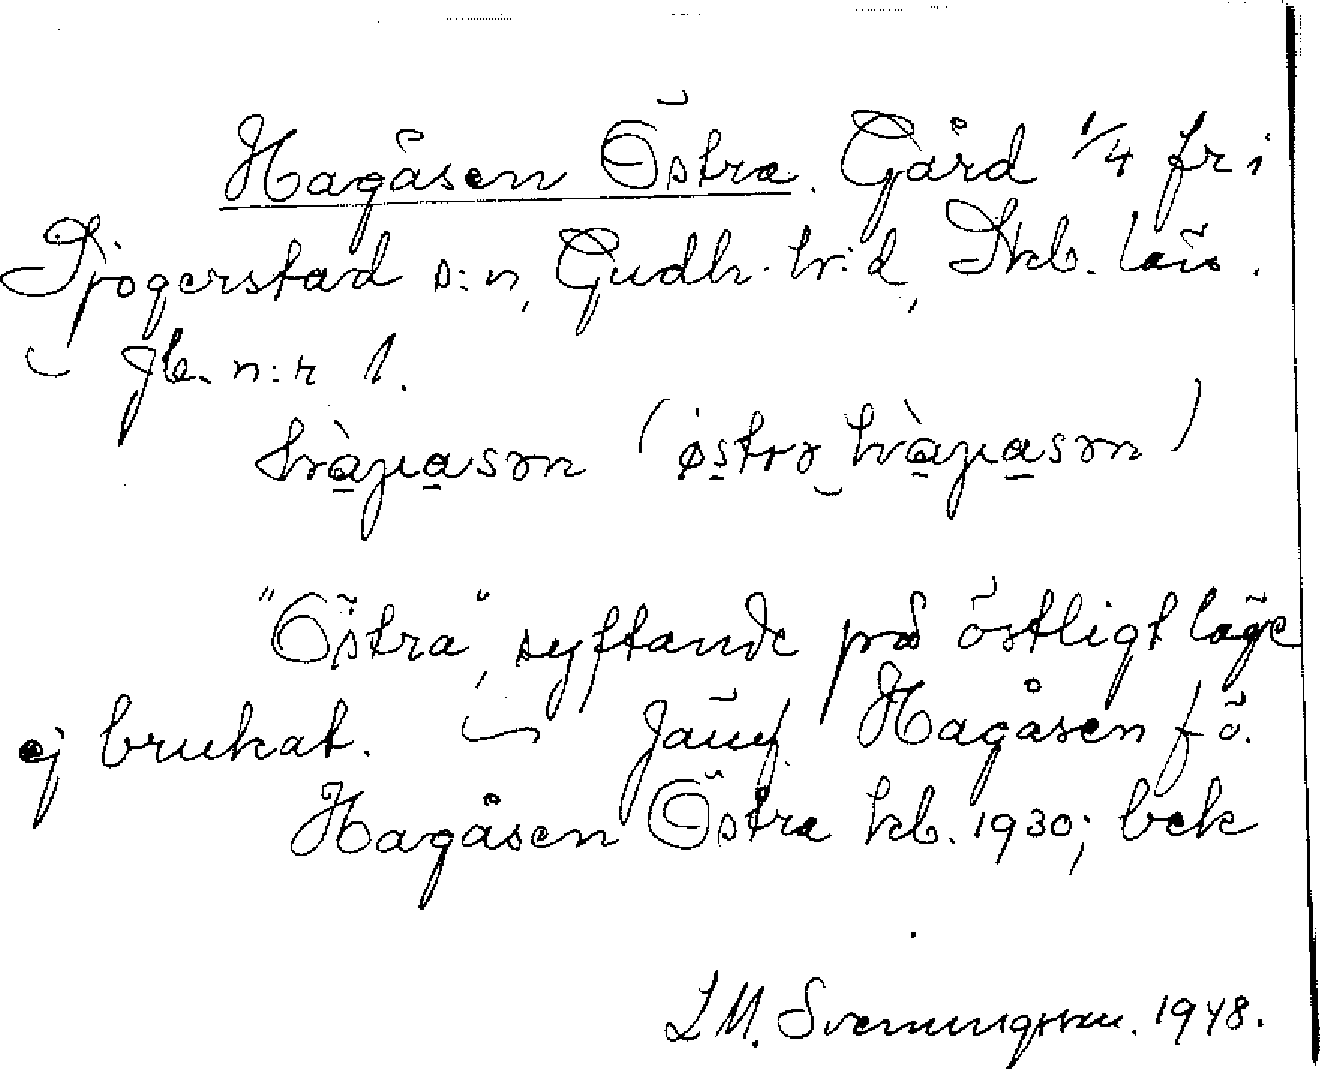 Hagåsen Östra. Gård 1/4 fr i
Tjogerstad s:n, Gudh. h:d, Skb. län.
Jb. n:r 1.
"Östra", syftande på östligt läge
ej brukat. Jämf. Hagåsen fö.
Hagåsen Östra kb. 1930; bek
L M. Svenungsson. 1948.